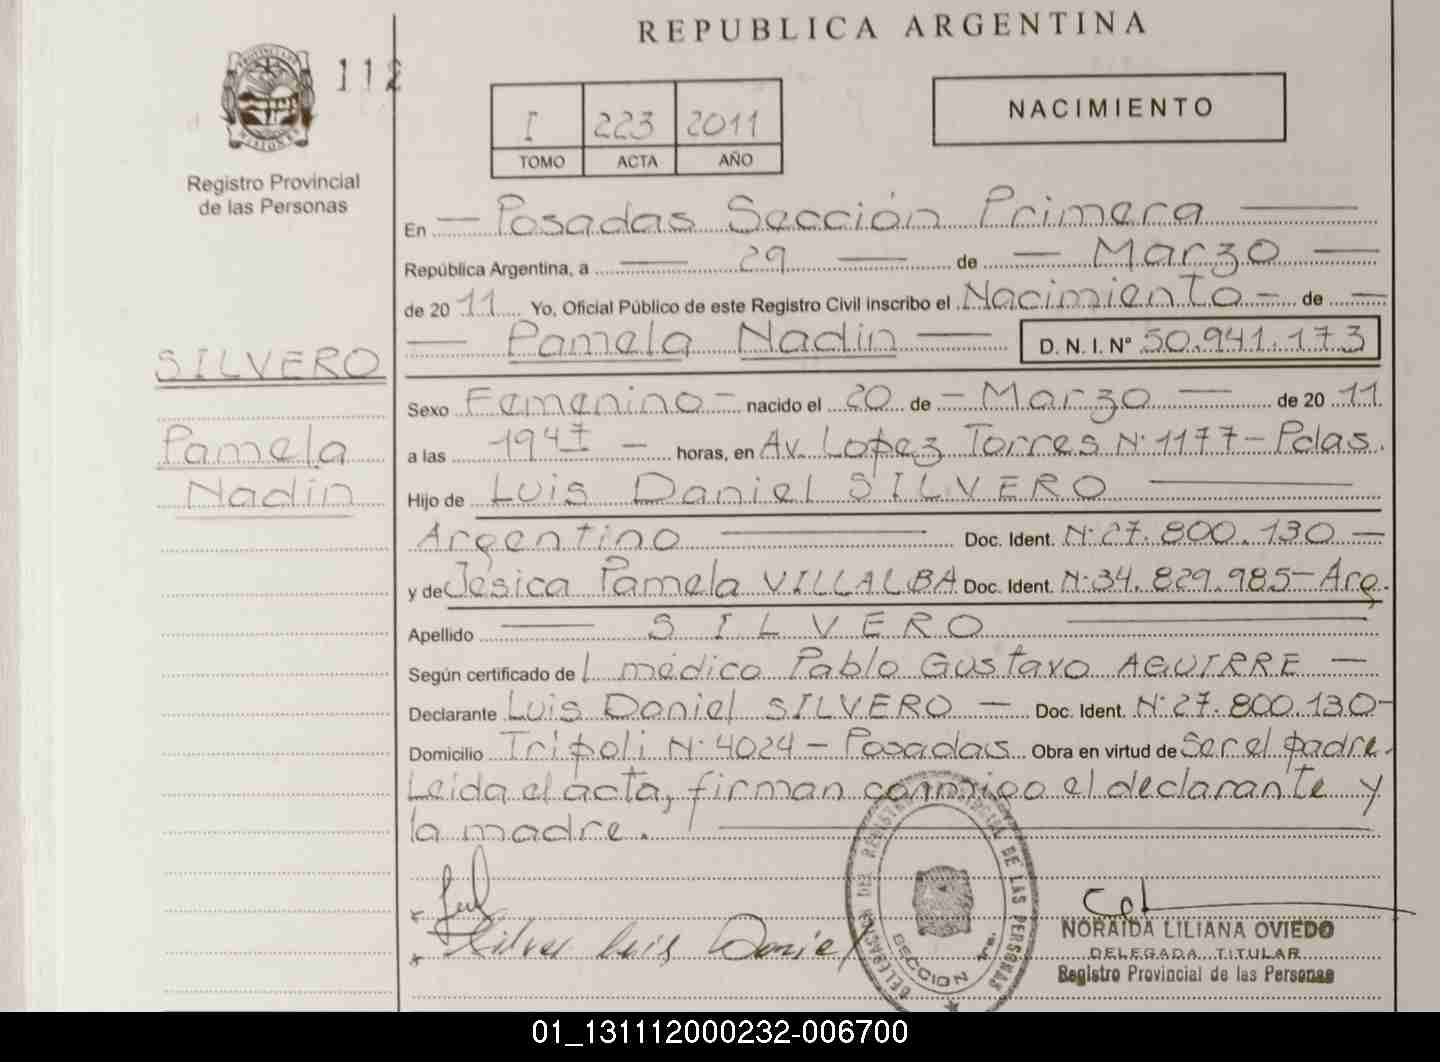 REPUBLICA ARGENTINA
112
I 223 2011
TOMO ACTA AÑO
NACIMIENTO
Registro Provincial
de las Personas
En Posadas Sección Primera
República Argentina, a 29 de Marzo
de 2011 Yo, Oficial Público de este Registro Civil inscribo el Nacimiento - de
Pamela Nadin D. N. I. Nº 50.941.173
SILVERO
Pamela
Nadin
Sexo Femenino - nacido el 20 de - Marzo - de 2011
a las 1947 - horas, en Av. Lopez Torres Nº 1177 - Pdas.
Hijo de Luis Daniel SILVERO
Argentino Doc. Ident. Nº 27.800.130 -
y de Jesica Pamela VILLALBA Doc. Ident. Nº 34.829.985 - Arg.
Apellido SILVERO
Según certificado del médico Pablo Gustavo AGUIRRE -
Declarante Luis Daniel SILVERO - Doc. Ident. Nº 27.800.130 -
Domicilio Tripoli Nº 4024 - Posadas Obra en virtud de Ser el padre.
Leida el acta, firman conmigo el declarante y
la madre.
Silvero Luis Daniel
DELEGACION DEL REGISTRO PROVINCIAL DE LAS PERSONAS
SECCION 1ra.
NORAIDA LILIANA OVIEDO
DELEGADA TITULAR
Registro Provincial de las Personas
01_131112000232-006700